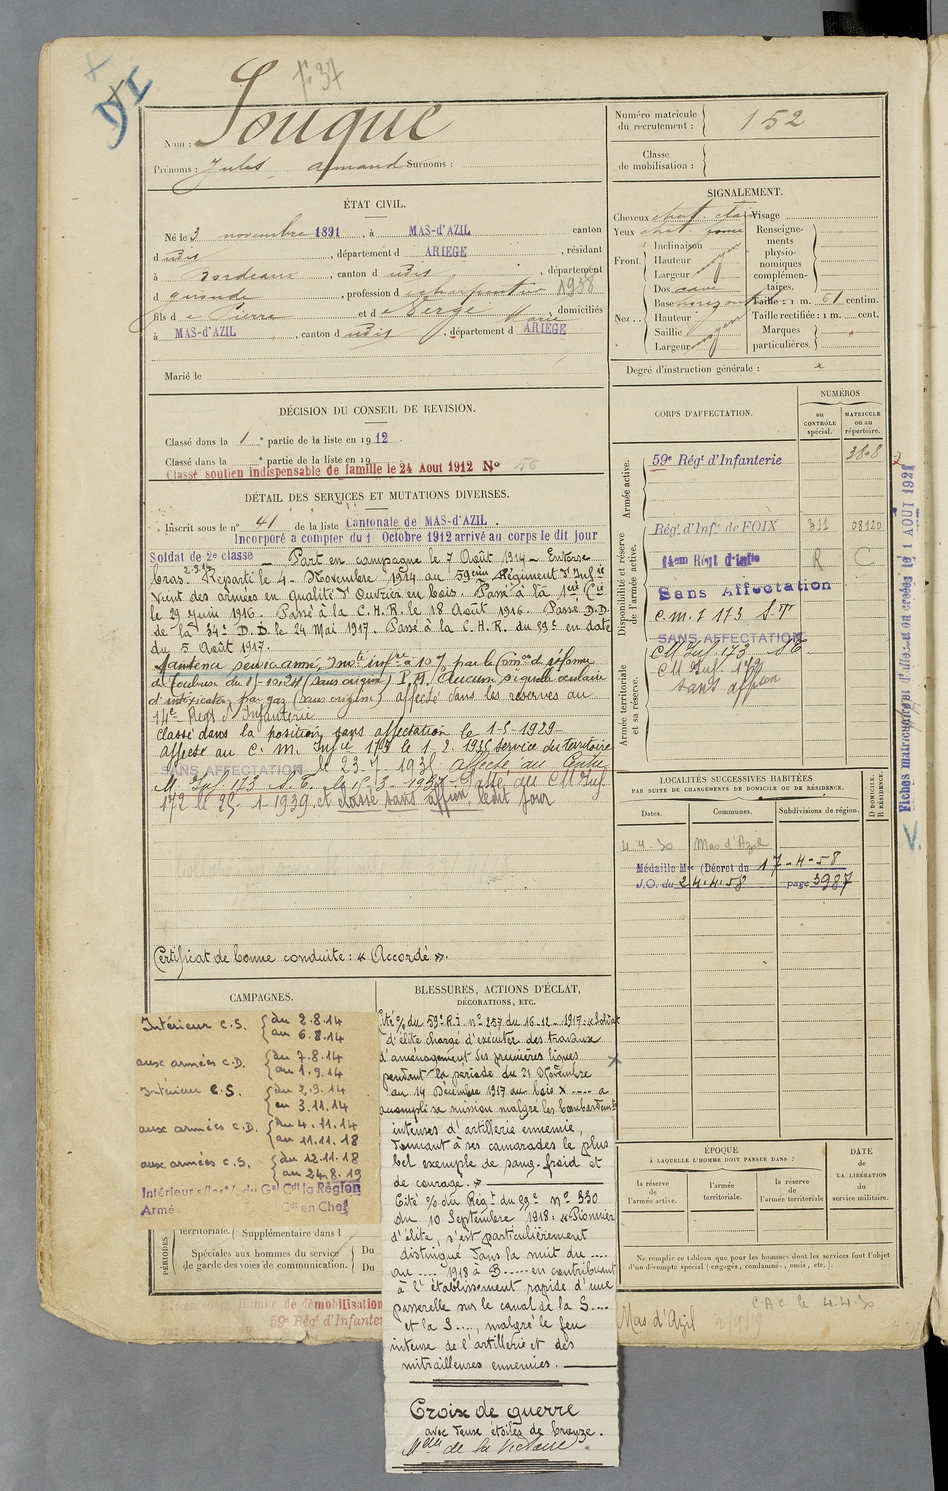 f° 37
Nom : Souque
Prénoms : Jules Armand Surnoms :
ÉTAT CIVIL.
Né le 3 novembre 1891, à MAS-d'AZIL canton
d udit, département d ARIEGE, résidant
à Bordeaux, canton d udit, département
d gironde, profession d charpentier 1938
fils d e Pierre et d e Serge Marie domiciliés
à MAS-d'AZIL, canton d udit, département d ARIEGE
Marié le
DÉCISION DU CONSEIL DE REVISION.
Classé dans la 1re partie de la liste en 1912.
Classé dans la partie de la liste en 19
Classé soutien indispensable de famille le 24 Aout 1912 N° 56
DÉTAIL DES SERVICES ET MUTATIONS DIVERSES.
Inscrit sous le n° 41 de la liste Cantonale de MAS-d'AZIL.
Incorporé a compter du 1 Octobre 1912 arrivé au corps le dit jour
Soldat de 2e classe — Part en campagne le 7 Août 1914 — Entorse
2.9.14
bras. Reparti le 4 - Novembre 1914 au 59eme Régiment d'Infie
Vient des armées en qualité d'Ouvrier en bois. Passé à la 1ere Cie
le 29 Juin 1916. Passé à la C.H.R. le 18 Août 1916. Passé D.D.
de la 34e D.I. le 24 Mai 1917. Passé à la C.H.R. du 59e en date
du 5 Août 1917.
Maintenu service armé, inv.té infre à 10 % par la Com.on de réforme
de Toulouse du (sans origine) P.A. Aucun signe oculaire
d'intoxication par gaz (sans origine) affecté dans les réserves au
14e Régt d'Infanterie
Classé dans la position sans affectation le 1-5-1929
Affecté au C. M. Infie 173 le 1.2.1935 service du territoire
SANS AFFECTATION le 23-7 1935 affecté au Centre
M. Inf. 173 S.T. le 15-3-1937. Passé au CM Inf.
172 le 25-1-1939 et classé sans affon ledit jour
Certificat de bonne conduite : « Accordé ».
CAMPAGNES.
Intérieur C.S. { du 2.8.14
au 6.8.14
aux armées C.D. { du 7.8.14
au 1.9.14
Intérieur C.S. { du 2.9.14
au 3.11.14
aux armées C.D. { du 4.11.14
au 11.11.18
aux armées C.S. { du 12.11.18
au 24.8.19
Intérieur s/les o/ du Gal Cdt la Région
Armé Cdt en Chef
PÉRIODES
territoriale. Supplémentaire dans l
Spéciales aux hommes du service Du
de garde des voies de communication. Du
démobilisation
59e Régt d'Infanter
BLESSURES, ACTIONS D'ÉCLAT,
DÉCORATIONS, ETC.
Cité % du 59e R.I n° 257 du 16-12-1917 : « Soldat
d'élite chargé d'exécuter des travaux
d'aménagement des premières lignes
pendant la période du 21 Novembre
au 14 Décembre 1917 au bois X ----- a
accompli sa mission malgré les bombardemts
intenses d'artillerie ennemie,
donnant à ses camarades le plus
bel exemple de sang-froid et
de courage. »
Cité % du Régt du 59e n° 330
du 10 Septembre 1918 : « Pionnier
d'élite, s'est particulièrement
distingué dans la nuit du ....
au .... 1918 à B----- en contribuant
à l'établissement rapide d'une
passerelle sur le canal de la S....
et la S...., malgré le feu
intense de l'artillerie et des
mitrailleuses ennemies.
Croix de guerre
avec deux étoiles de bronze.
Mdlle de la Victoire
Numéro matricule
du recrutement : 152
Classe
de mobilisation :
SIGNALEMENT.
Cheveux chat. clair Visage
Yeux chat. Renseigne-
ments
physio-
nomiques
complémen-
taires.
Front. Inclinaison
Hauteur moyen
Largeur
Nez . . Dos cave
Base horizont
Hauteur
Saillie moyen
Largeur
Taille : 1 m. 61 centim.
Taille rectifiée : 1 m. cent.
Marques
particulières.
Degré d'instruction générale : 2
CORPS D'AFFECTATION.
NUMÉROS
au
CONTRÔLE
spécial.
MATRICULE
ou au
répertoire.
Armée active.
59e Régt d'Infanterie 3808
Disponibilité et réserve
de l'armée active.
Régt d'Infie de FOIX 311 08120
14em Régt d'Infie R C
Sans Affectation
C.M.I 173 S.T
Armée territoriale
et sa réserve.
SANS AFFECTATION
CM Inf. 173 S.T.
CM Inf. 172
sans affion
LOCALITÉS SUCCESSIVES HABITÉES
PAR SUITE DE CHANGEMENTS DE DOMICILE OU DE RÉSIDENCE.
Dates. Communes. Subdivisions de région. D DOMICILE. R RÉSIDENCE.
4.4.30 Mas d'Azil
Médaille Mre (Décret du 17-4-58
J.O. du 24.4.58 page 3987
ÉPOQUE
À LAQUELLE L'HOMME DOIT PASSER DANS :
la réserve
de l'armée active.
l'armée
territoriale.
la réserve
de l'armée territoriale
DATE
de
LA LIBÉRATION
du
service militaire.
Ne remplir ce tableau que pour les hommes dont les services font l'objet
d'un décompte spécial (engagés, condamnés, omis, etc.).
Mas d'Azil
C.A.C. le 4.4.30